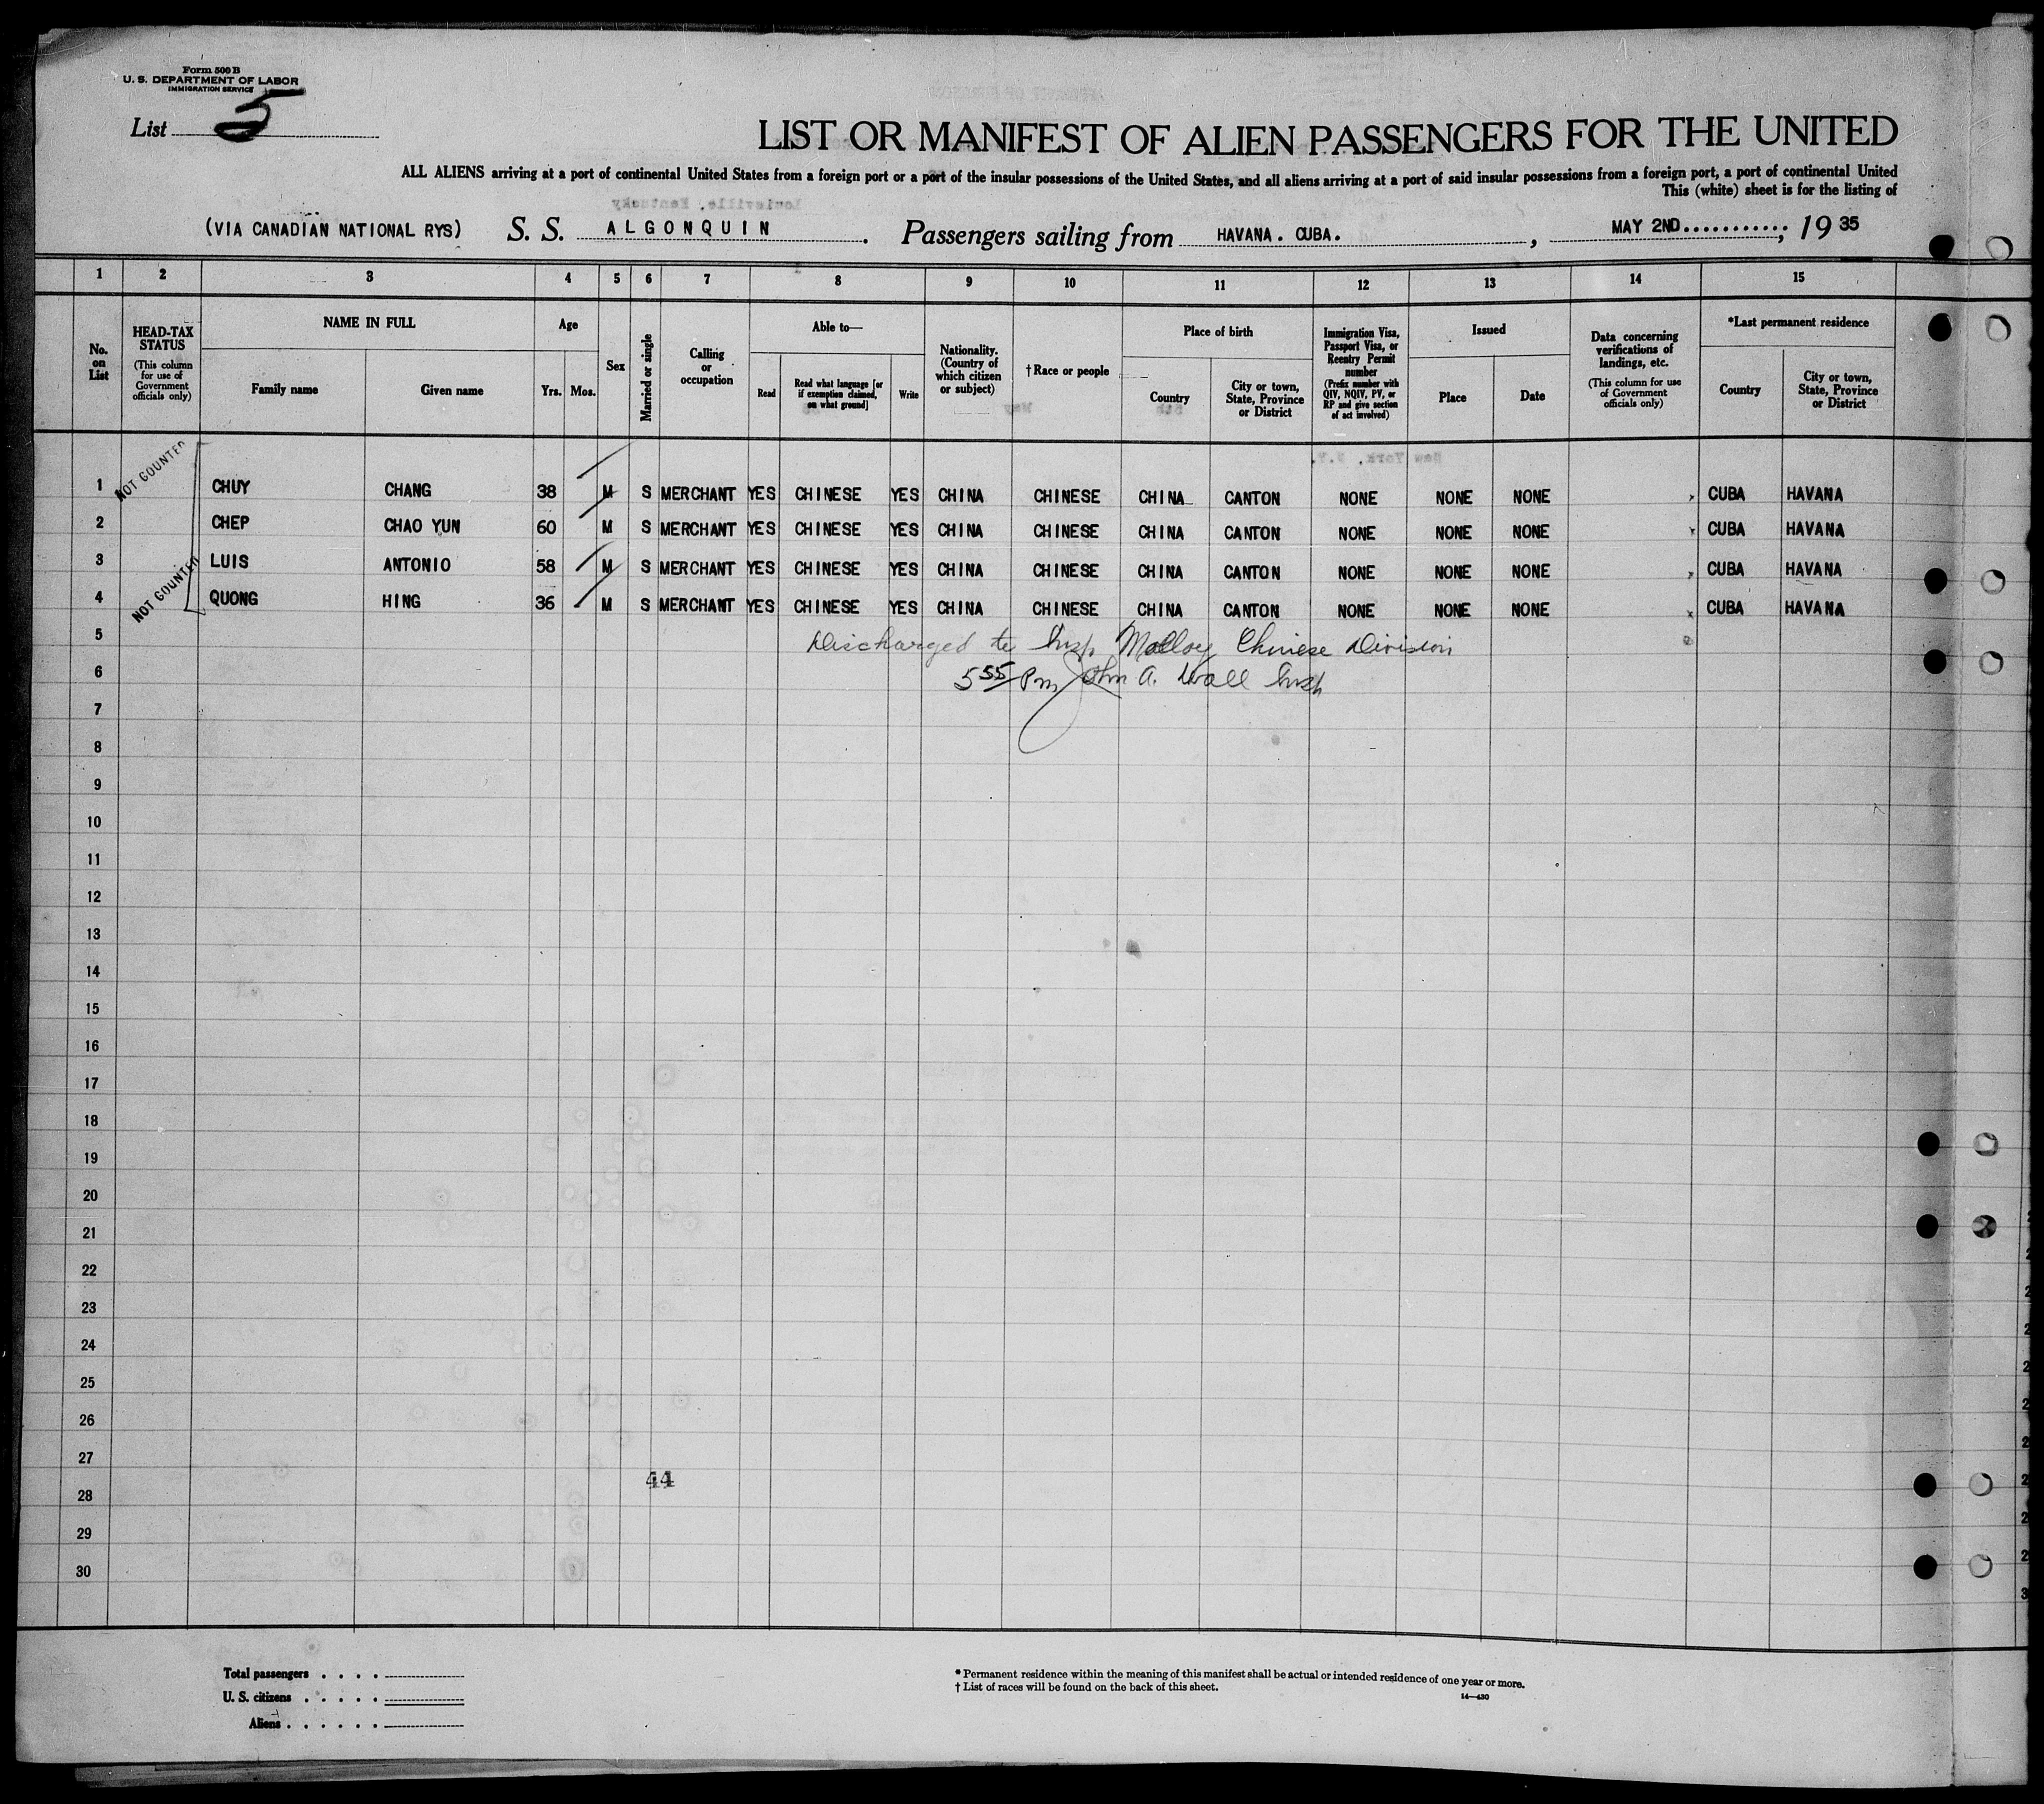 Form 500 B
U. S. DEPARTMENT OF LABOR
IMMIGRATION SERVICE
List 5
LIST OR MANIFEST OF ALIEN PASSENGERS FOR THE UNITED
ALL ALIENS arriving at a port of continental United States from a foreign port or a port of the insular possessions of the United States, and all aliens arriving at a port of said insular possessions from a foreign port, a port of continental United
This (white) sheet is for the listing of
(VIA CANADIAN NATIONAL RYS) S. S. ALGONQUIN. Passengers sailing from HAVANA. CUBA. , MAY 2ND...........; 19 35
1 2 3 4 5 6 7 8 9 10 11 12 13 14 15
No. on List
HEAD-TAX STATUS
(This column for use of Government officials only)
NAME IN FULL
Family name Given name
Age
Yrs. Mos.
Sex
Married or single
Calling or occupation
Able to—
Read Read what language [or if exemption claimed, on what ground] Write
Nationality. (Country of which citizen or subject)
†Race or people
Place of birth
Country City or town, State, Province or District
Immigration Visa, Passport Visa, or Reentry Permit number
(Prefix number with QIV, NQIV, PV, or RP and give section of act involved)
Issued
Place Date
Data concerning verifications of landings, etc.
(This column for use of Government officials only)
*Last permanent residence
Country City or town, State, Province or District
NOT COUNTED
1 CHUY CHANG 38 M S MERCHANT YES CHINESE YES CHINA CHINESE CHINA CANTON NONE NONE NONE CUBA HAVANA
2 CHEP CHAO YUN 60 M S MERCHANT YES CHINESE YES CHINA CHINESE CHINA CANTON NONE NONE NONE CUBA HAVANA
3 LUIS ANTONIO 58 M S MERCHANT YES CHINESE YES CHINA CHINESE CHINA CANTON NONE NONE NONE CUBA HAVANA
NOT COUNTED
4 QUONG HING 36 M S MERCHANT YES CHINESE YES CHINA CHINESE CHINA CANTON NONE NONE NONE CUBA HAVANA
5 Discharged to Insp Molloy Chinese Division
6 5 55 Pm John A. Wall Insp
7
8
9
10
11
12
13
14
15
16
17
18
19
20
21
22
23
24
25
26
27
44
28
29
30
Total passengers . . . .
U. S. citizens . . . . .
Aliens . . . . . .
* Permanent residence within the meaning of this manifest shall be actual or intended residence of one year or more.
† List of races will be found on the back of this sheet.
14—430